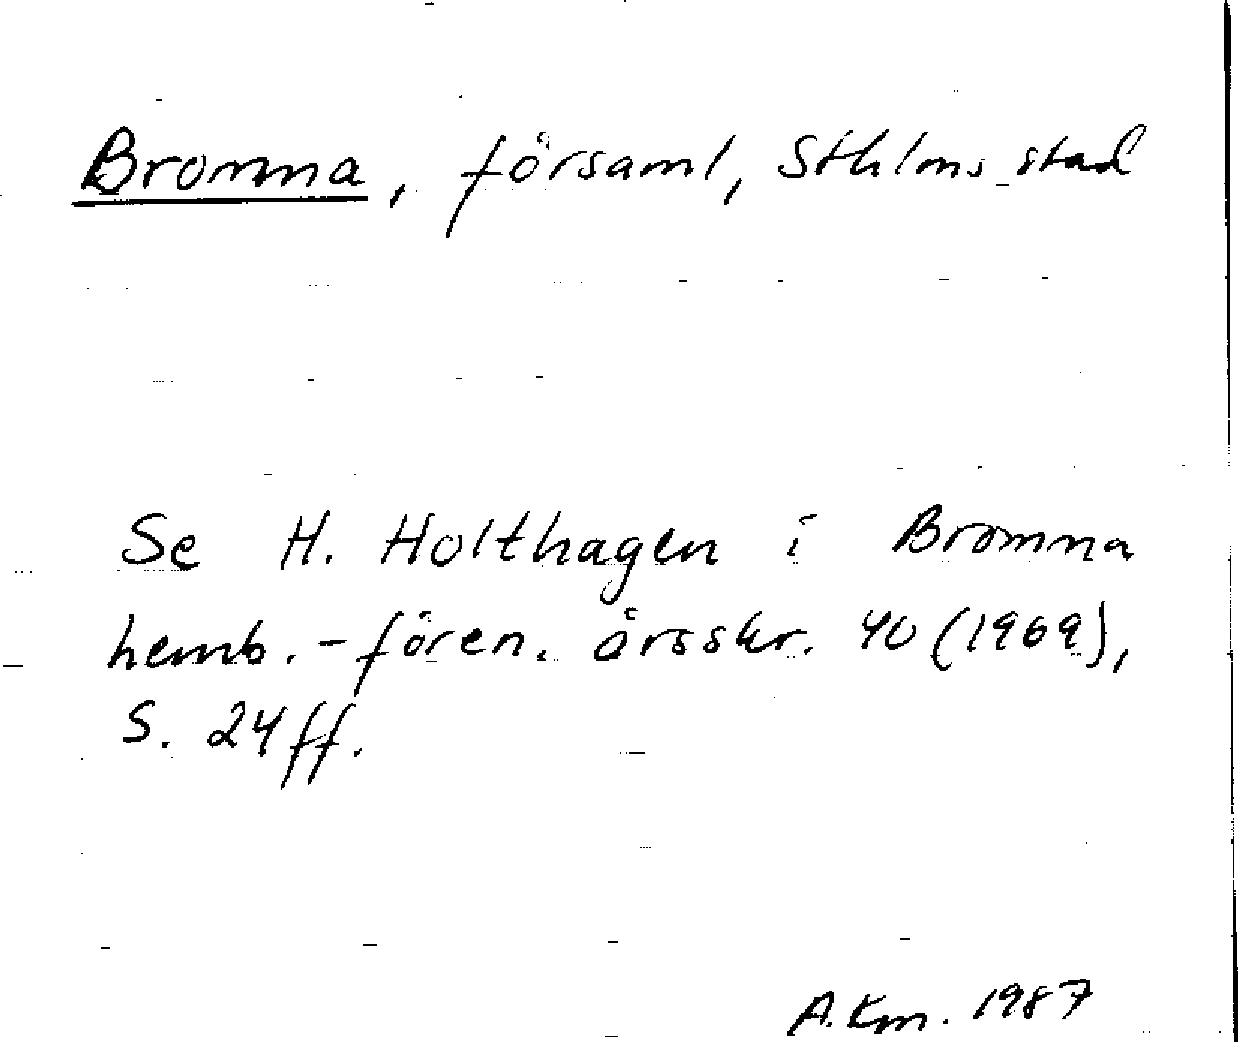 Bromma, församl, Sthlms stad
Se H. Holthagen i Bromma
hemb.-fören. årsskr. 40 (1969),
S. 24 ff.
A.Km. 1987